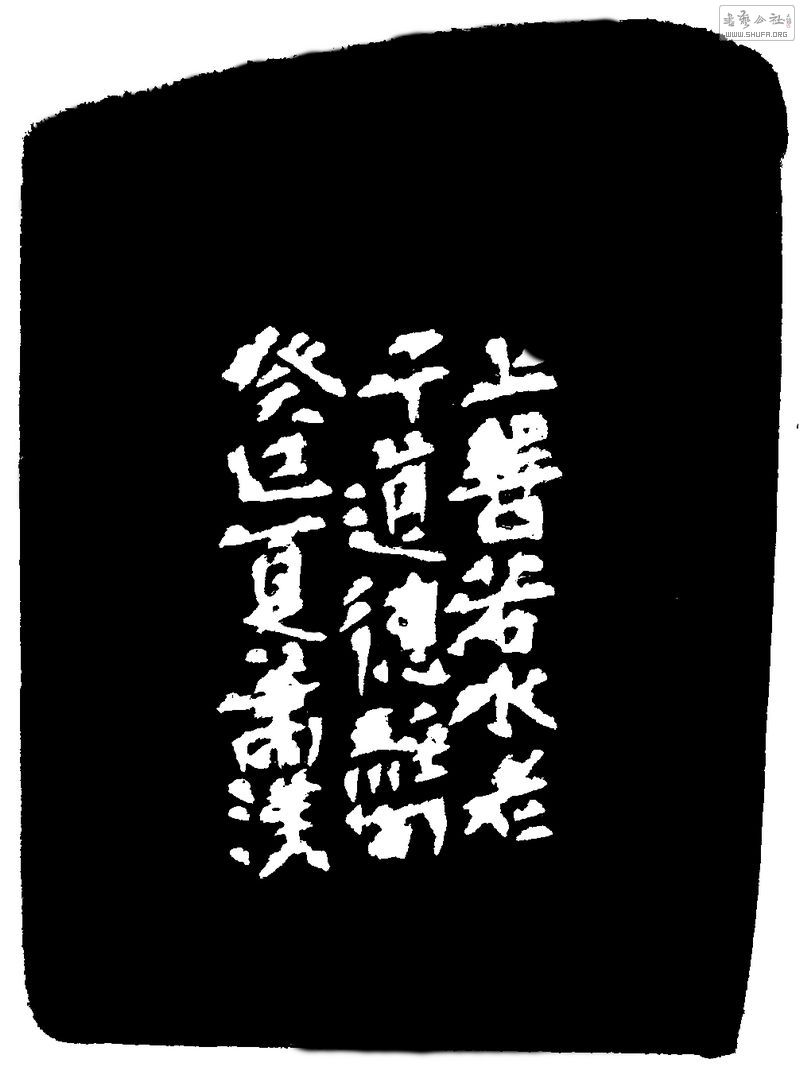 上善若水老
子道德經句
癸巳夏蕭漢
書藝公社
WWW.SHUFA.ORG